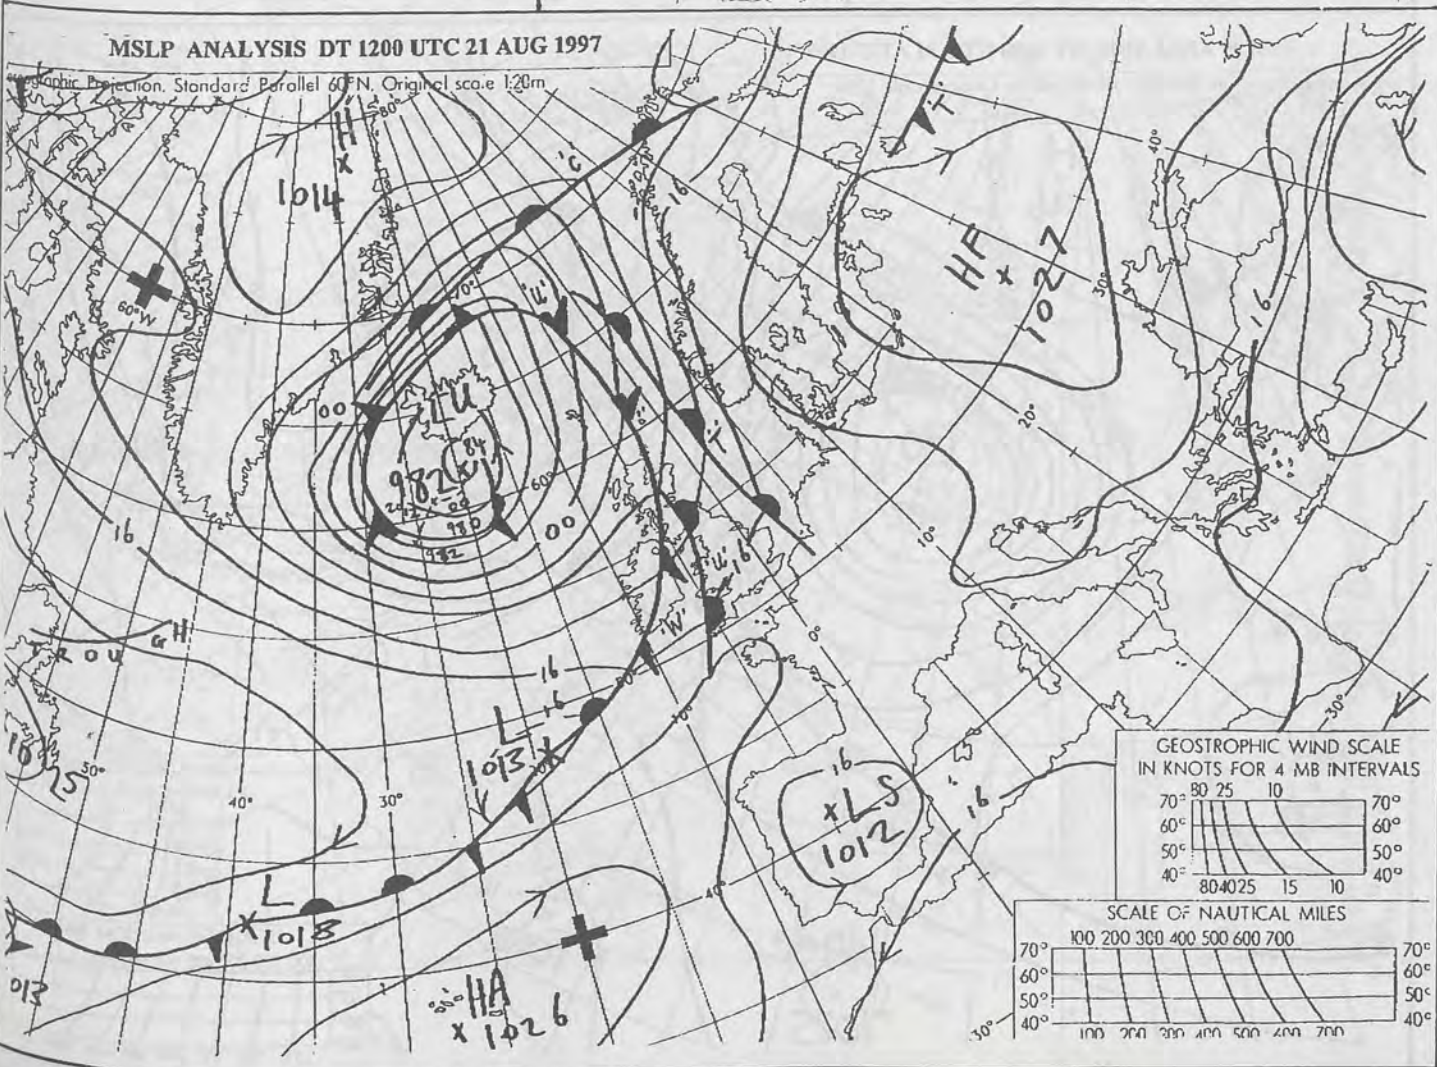 MSLP ANALYSIS DT 1200 UTC 21 AUG 1997
Projection, Standard Parallel 60°N, Original scale 1:20m
80°
H
1014
'G'
16
'T'
40°
HF
1027
30°
60°W
70°
'U'
00
LU
982
84
980
982
60°
00
16
'T'
20°
16
10°
'U'
16
'W'
0°
TROUGH
16
16
50°
L
1013
10°
10
LS
50°
40°
30°
16
LS
1012
16
30°
L
1018
40°
HA
1026
013
30°
GEOSTROPHIC WIND SCALE
IN KNOTS FOR 4 MB INTERVALS
80 25 10
70° 70°
60° 60°
50° 50°
40° 40°
80 40 25 15 10
SCALE OF NAUTICAL MILES
100 200 300 400 500 600 700
70° 70°
60° 60°
50° 50°
40° 40°
100 200 300 400 500 600 700